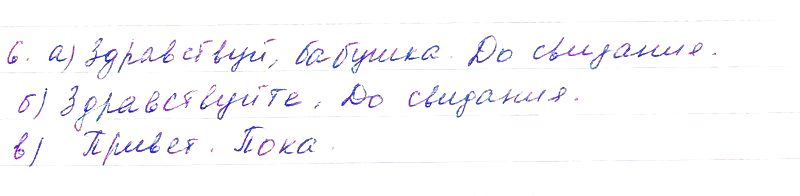 6. а) Здравствуй, бабушка. До свидания.
б) Здравствуйте. До свидания.
в) Привет. Пока.